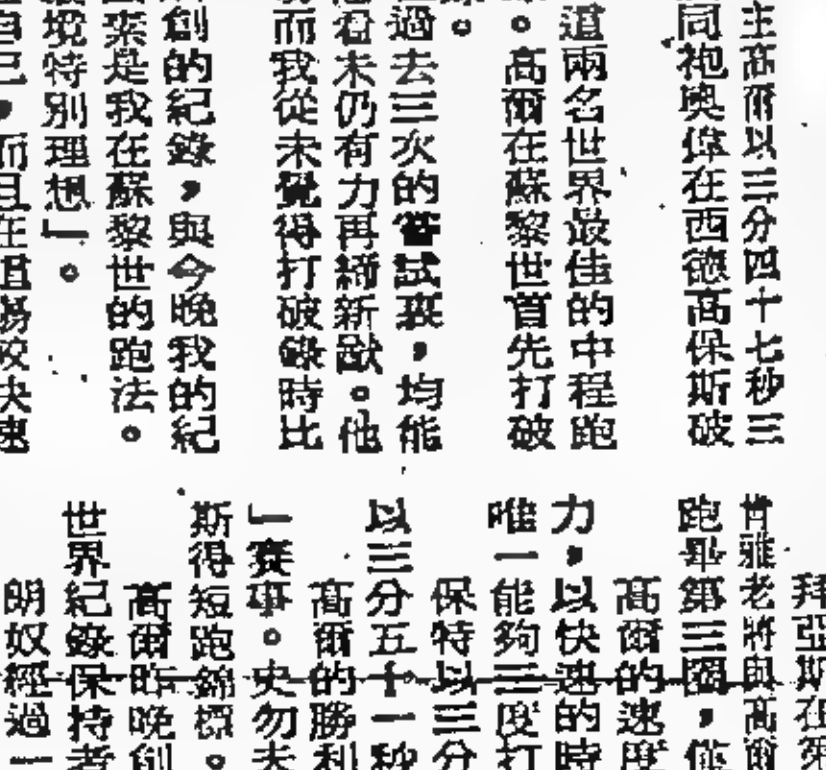 主高爾以三分四十七秒三
同袍奧偉在西德高保斯破
道兩名世界最佳的中程跑
。高爾在蘇黎世首先打破
過去三次的嘗試裏，均能
着未仍有力再締新猷。他
而我從未覺得打破錄時比
創的紀錄，與今晚我的紀
來是我在蘇黎世的跑法。
境特別理想」。
自己，而且在
快速
拜亞斯在第
肯雅老將與高爾
跑畢第三圈，
高爾的速度
力，以快速的時
唯一能夠三度打
保特以三分
以三分五十一秒
高爾的勝利
」賽事。史勿夫
斯得短跑錦標。
高爾昨晚創
世界紀錄保持者
朗奴經過一